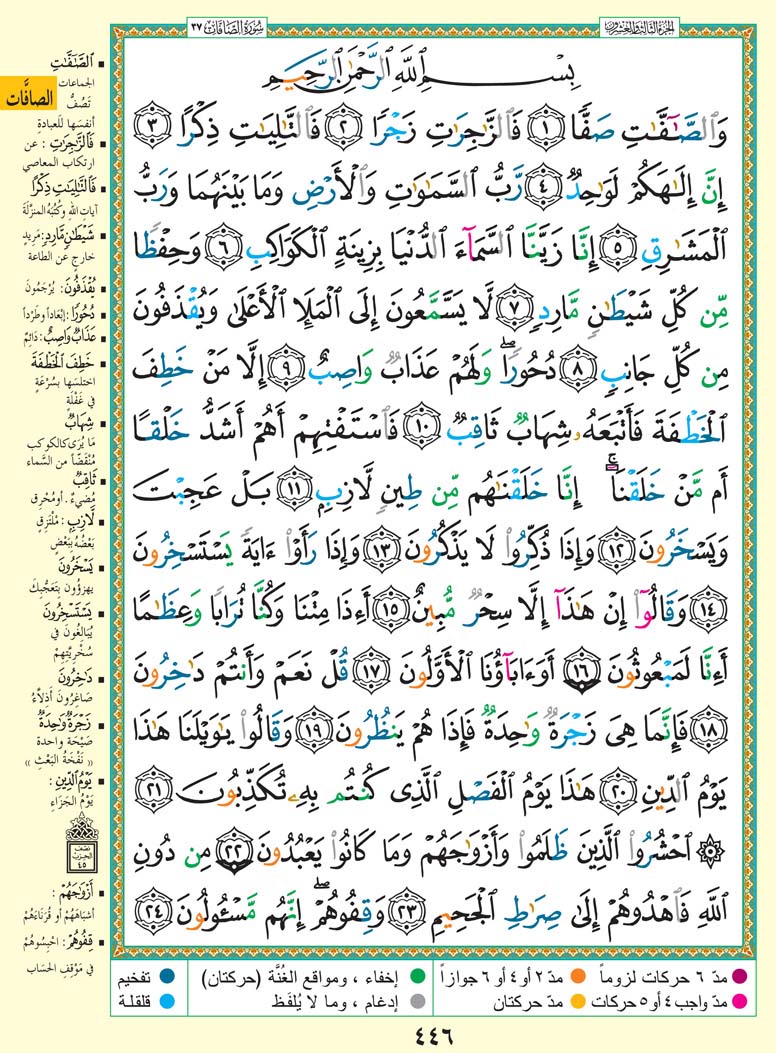 الجزء الثالث والعشرون
سورة الصافات ٣٧
بِسْمِ ٱللَّهِ ٱلرَّحْمَٰنِ ٱلرَّحِيمِ
وَٱلصَّٰٓفَّٰتِ صَفًّا ١ فَٱلزَّٰجِرَٰتِ زَجْرًا ٢ فَٱلتَّٰلِيَٰتِ ذِكْرًا ٣
إِنَّ إِلَٰهَكُمْ لَوَٰحِدٌ ٤ رَّبُّ ٱلسَّمَٰوَٰتِ وَٱلْأَرْضِ وَمَا بَيْنَهُمَا وَرَبُّ
ٱلْمَشَٰرِقِ ٥ إِنَّا زَيَّنَّا ٱلسَّمَآءَ ٱلدُّنْيَا بِزِينَةٍ ٱلْكَوَاكِبِ ٦ وَحِفْظًا
مِّن كُلِّ شَيْطَٰنٍ مَّارِدٍ ٧ لَّا يَسَّمَّعُونَ إِلَى ٱلْمَلَإِ ٱلْأَعْلَىٰ وَيُقْذَفُونَ
مِن كُلِّ جَانِبٍ ٨ دُحُورًا ۖ وَلَهُمْ عَذَابٌ وَاصِبٌ ٩ إِلَّا مَنْ خَطِفَ
ٱلْخَطْفَةَ فَأَتْبَعَهُۥ شِهَابٌ ثَاقِبٌ ١٠ فَٱسْتَفْتِهِمْ أَهُمْ أَشَدُّ خَلْقًا
أَم مَّنْ خَلَقْنَآ ۚ إِنَّا خَلَقْنَٰهُم مِّن طِينٍ لَّازِبٍ ١١ بَلْ عَجِبْتَ
وَيَسْخَرُونَ ١٢ وَإِذَا ذُكِّرُوا۟ لَا يَذْكُرُونَ ١٣ وَإِذَا رَأَوْا۟ ءَايَةً يَسْتَسْخِرُونَ
١٤ وَقَالُوٓا۟ إِنْ هَٰذَآ إِلَّا سِحْرٌ مُّبِينٌ ١٥ أَءِذَا مِتْنَا وَكُنَّا تُرَابًا وَعِظَٰمًا
أَءِنَّا لَمَبْعُوثُونَ ١٦ أَوَءَابَآؤُنَا ٱلْأَوَّلُونَ ١٧ قُلْ نَعَمْ وَأَنتُمْ دَٰخِرُونَ
١٨ فَإِنَّمَا هِىَ زَجْرَةٌ وَٰحِدَةٌ فَإِذَا هُمْ يَنظُرُونَ ١٩ وَقَالُوا۟ يَٰوَيْلَنَا هَٰذَا
يَوْمُ ٱلدِّينِ ٢٠ هَٰذَا يَوْمُ ٱلْفَصْلِ ٱلَّذِى كُنتُم بِهِۦ تُكَذِّبُونَ ٢١
۞ ٱحْشُرُوا۟ ٱلَّذِينَ ظَلَمُوا۟ وَأَزْوَٰجَهُمْ وَمَا كَانُوا۟ يَعْبُدُونَ ٢٢ مِن دُونِ
ٱللَّهِ فَٱهْدُوهُمْ إِلَىٰ صِرَٰطِ ٱلْجَحِيمِ ٢٣ وَقِفُوهُمْ ۖ إِنَّهُم مَّسْـُٔولُونَ ٢٤
▪ ٱلصَّٰٓفَّٰتِ
الجماعات
تَصُفُّ
الصافَّات
أنفسَها للعبادةِ
▪ فَٱلزَّٰجِرَٰتِ : عن
ارتكاب المعاصي
▪ فَٱلتَّٰلِيَٰتِ ذِكْرًا
آيات الله وكُتُبَه المنزَّلة
▪ شَيْطَٰنٍ مَّارِدٍ : مَريدٍ
خارج عن الطاعة
▪ يُقْذَفُونَ : يُرْجَمُونَ
▪ دُحُورًا : إبْعَاداً وطَرْداً
▪ عَذَابٌ وَاصِبٌ : دَائِمٌ
▪ خَطِفَ ٱلْخَطْفَةَ
اختلسَها بسُرْعَةٍ
في غَفْلَةٍ
▪ شِهَابٌ
مَا يُرَى كالكوكب
مُنْقَضّاً من السَّماء
▪ ثَاقِبٌ
مُضيءٌ . أو مُحْرِق
▪ لَّازِبٍ : مُلْتَزِقٍ
بَعْضُه بِبَعْضٍ
▪ يَسْخَرُونَ
يهزؤون بِتَعَجُّبِكَ
▪ يَسْتَسْخِرُونَ
يُبَالِغُونَ في
سُخْرِيَتِهِمْ
▪ دَٰخِرُونَ
صَاغِرُونَ أذِلّاءُ
▪ زَجْرَةٌ وَٰحِدَةٌ
صَيْحَة واحدة
« نَفْخَةُ البَعْثِ »
▪ يَوْمُ ٱلدِّينِ :
يَوْمُ الجَزَاءِ
نصف
الحزب
٤٥
▪ أَزْوَٰجَهُمْ :
أشْبَاهَهُمْ أو قُرَنَاءَهُمْ
▪ قِفُوهُمْ : احْبِسُوهُمْ
في مَوْقِفِ الحسَاب
مدّ ٦ حركات لزوماً ● مدّ ٢ أو ٤ أو ٦ جوازاً
مدّ واجب ٤ أو ٥ حركات ● مدّ حركتان
إخفاء ، ومواقع الغُنَّة (حركتان)
إدغام ، وما لا يُلفَظ
تفخيم
قلقلة
٤٤٦